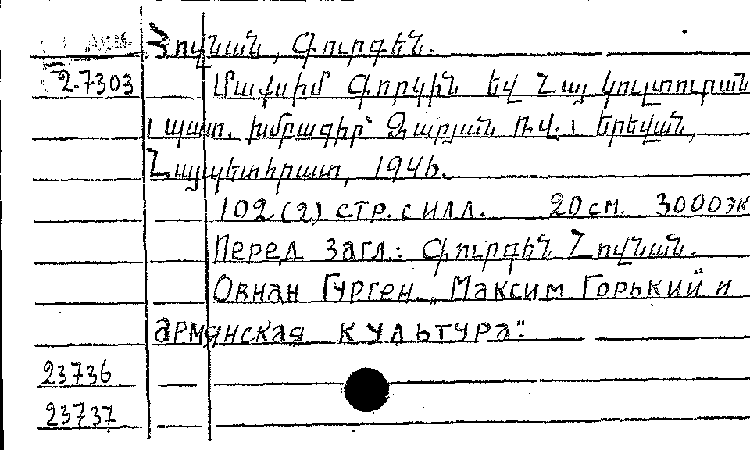 Հովնան, Գուրգեն.
2-7303 Մաքսիմ Գորկին եվ հայ կուլտուրան
պատ. խմբագիր՝ Զարյան Ռ.վ.: Երեվան,
Հայպետհրատ, 1946.
102 (2) стр. с илл. 20 см. 3000 эк
Перед загл.: Գուրգեն Հովնան.
Овнан Гурген „Максим Горький и
армянская культура".
23736
23737